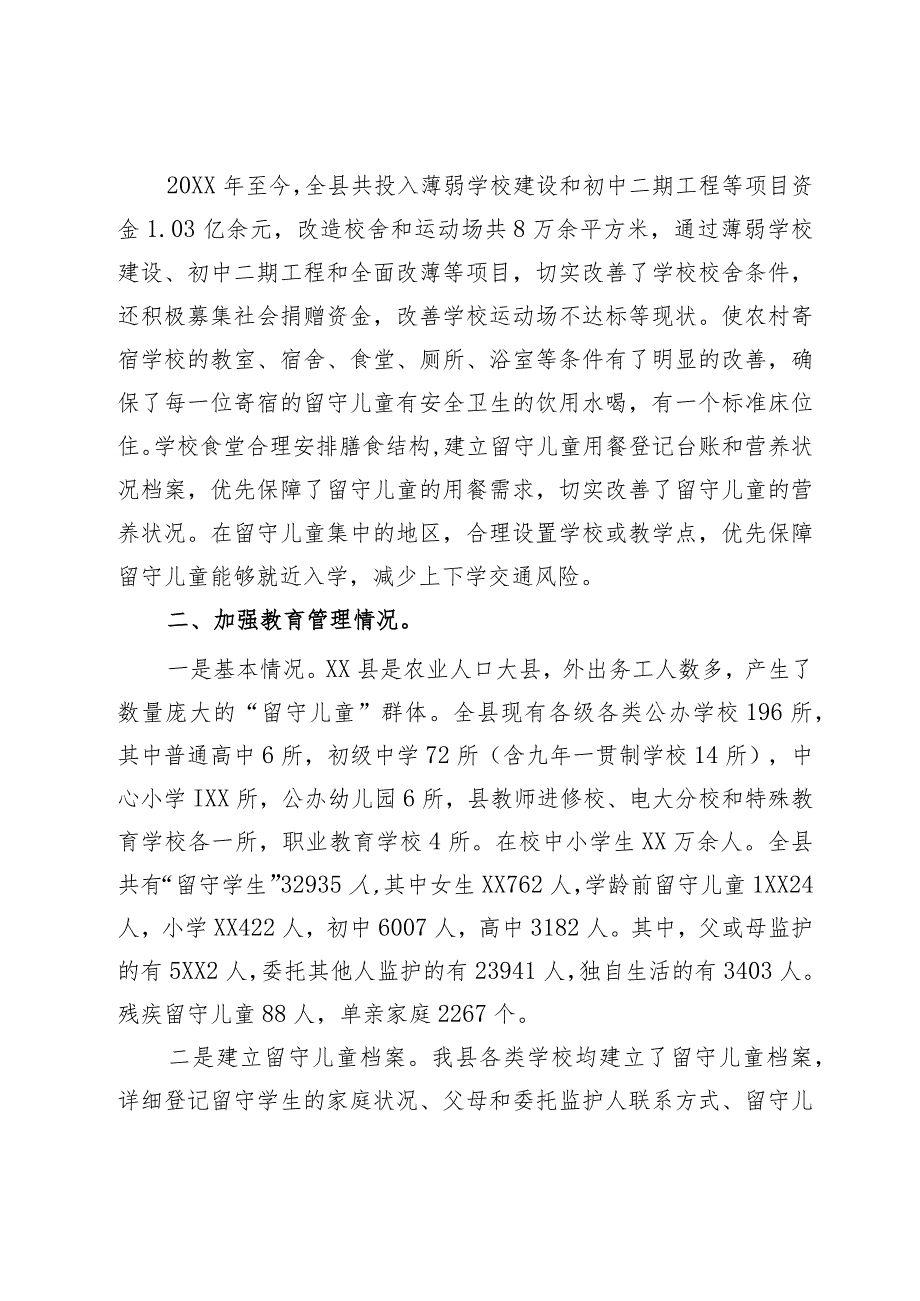 20XX 年至今,全县共投入薄弱学校建设和初中二期工程等项目资
金 1.03 亿余元，改造校舍和运动场共 8 万余平方米，通过薄弱学校
建设、初中二期工程和全面改薄等项目，切实改善了学校校舍条件，
还积极募集社会捐赠资金，改善学校运动场不达标等现状。使农村寄
宿学校的教室、宿舍、食堂、厕所、浴室等条件有了明显的改善，确
保了每一位寄宿的留守儿童有安全卫生的饮用水喝，有一个标准床位
住。学校食堂合理安排膳食结构,建立留守儿童用餐登记台账和营养状
况档案，优先保障了留守儿童的用餐需求，切实改善了留守儿童的营
养状况。在留守儿童集中的地区，合理设置学校或教学点，优先保障
留守儿童能够就近入学，减少上下学交通风险。
二、加强教育管理情况。
一是基本情况。XX 县是农业人口大县，外出务工人数多，产生了
数量庞大的“留守儿童”群体。全县现有各级各类公办学校 196 所，
其中普通高中 6 所，初级中学 72 所（含九年一贯制学校 14 所），中
心小学 IXX 所，公办幼儿园 6 所，县教师进修校、电大分校和特殊教
育学校各一所，职业教育学校 4 所。在校中小学生 XX 万余人。全县
共有“留守学生”32935 人,其中女生 XX762 人,学龄前留守儿童 1XX24
人，小学 XX422 人，初中 6007 人，高中 3182 人。其中，父或母监护
的有 5XX2 人,委托其他人监护的有 23941 人,独自生活的有 3403 人。
残疾留守儿童 88 人，单亲家庭 2267 个。
二是建立留守儿童档案。我县各类学校均建立了留守儿童档案，
详细登记留守学生的家庭状况、父母和委托监护人联系方式、留守儿